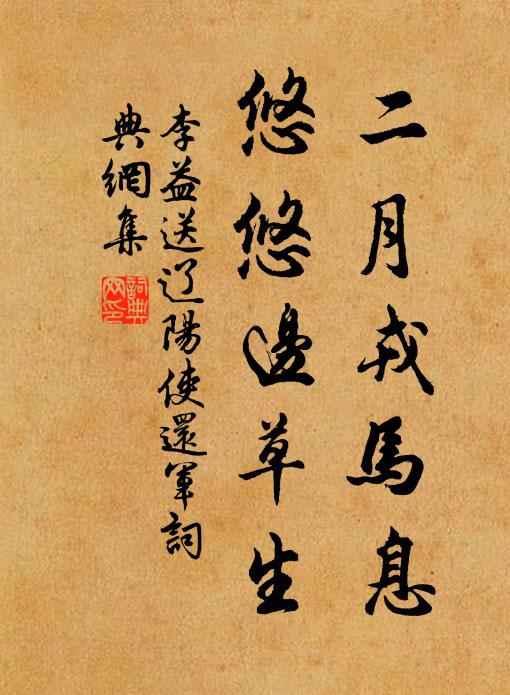 二月戎馬息
悠悠邊草生
李益送辽陽使還軍詞
典網集
詞典
网印